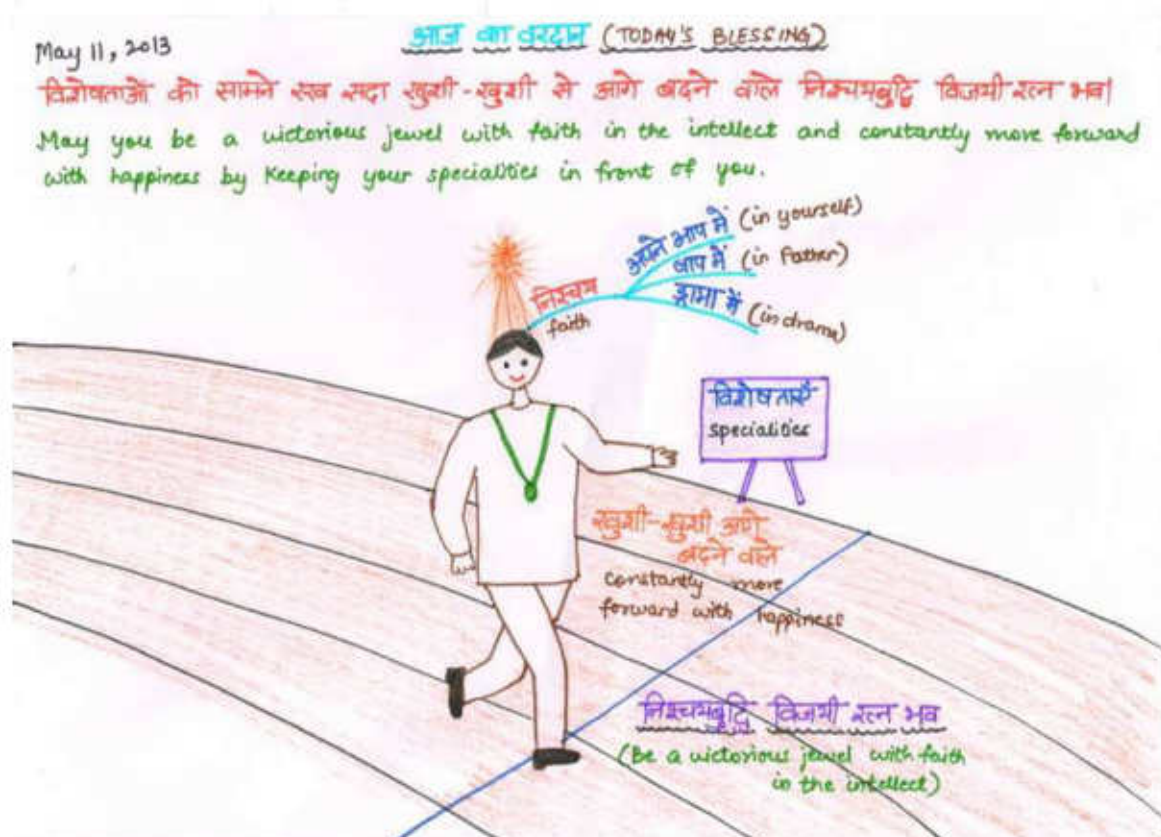 May 11, 2013
आज का वरदान (TODAY'S BLESSING)
विशेषताओं को सामने रख सदा खुशी-खुशी से आगे बढ़ने वाले निश्चयबुद्धि विजयी रत्न भव।
May you be a victorious jewel with faith in the intellect and constantly move forward
with happiness by keeping your specialities in front of you.
अपने आप में (in yourself)
बाप में (in Father)
निश्चय
ड्रामा में (in drama)
faith
विशेषताएँ
specialities
खुशी-खुशी आगे
बढ़ने वाले
constantly move
forward with happiness
निश्चयबुद्धि विजयी रत्न भव
(Be a victorious jewel with faith
in the intellect)